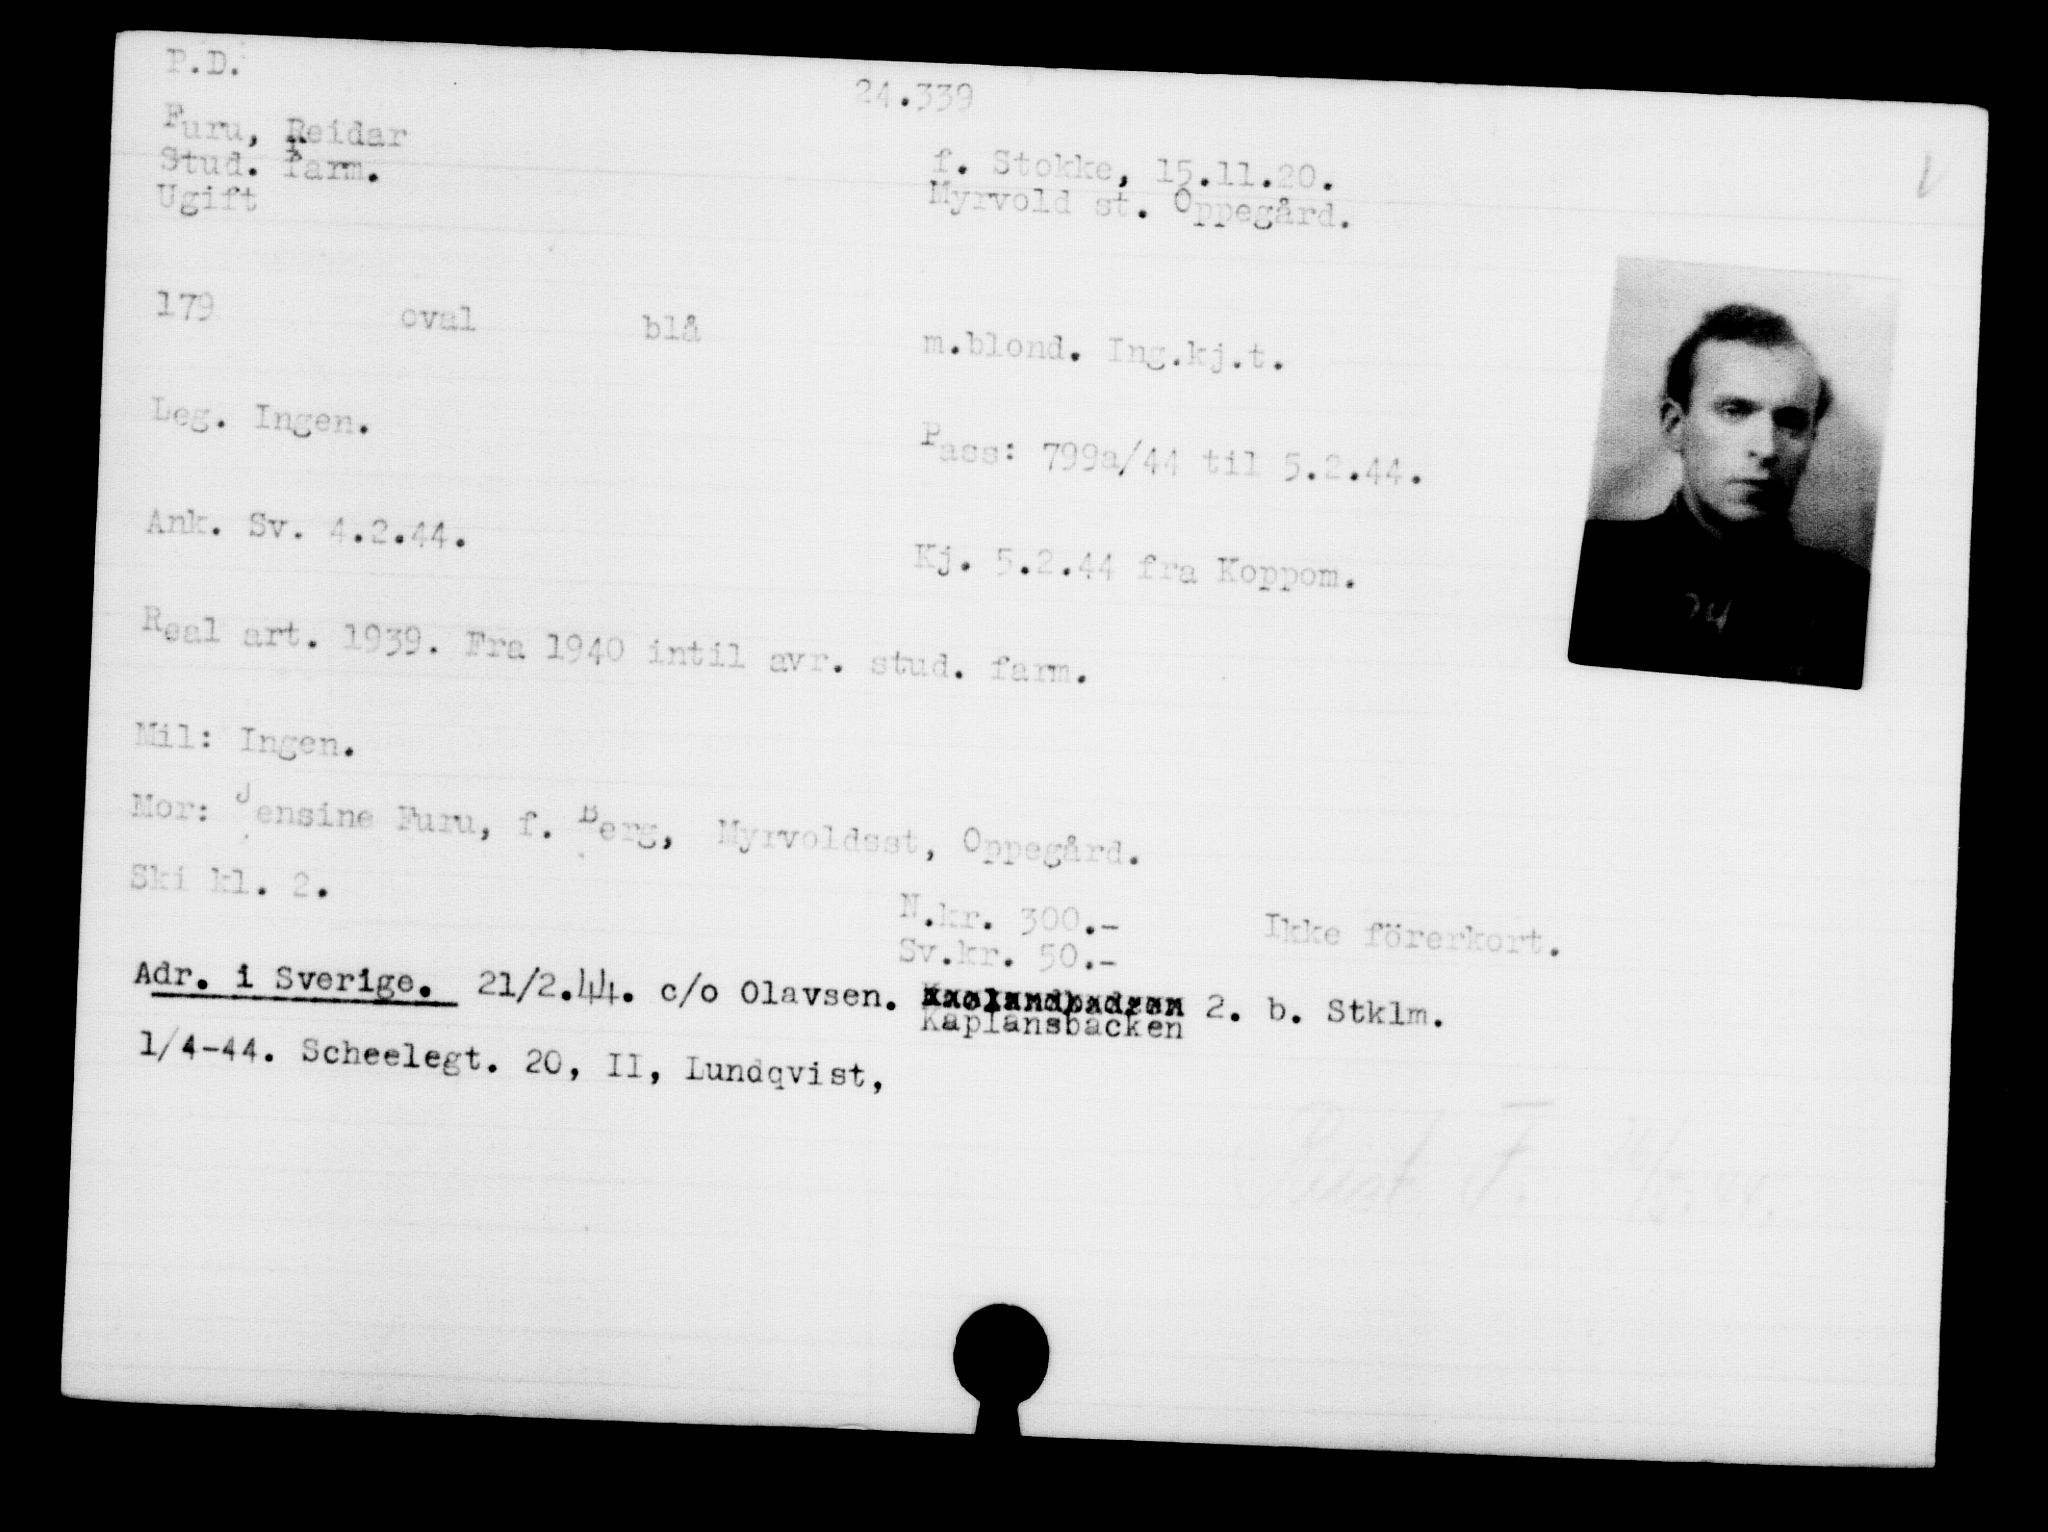 P.D.
24.339
Furu, Reidar
Stud. farm.
Ugift
f. Stokke, 15.11.20.
Myrvold st. Oppegård.
179 oval blå m.blond. Ing.kj.t.
Leg. Ingen. Pass: 799a/44 til 5.2.44.
Ank. Sv. 4.2.44. Kj. 5.2.44 fra Koppom.
Real art. 1939. Fra 1940 intil avr. stud. farm.
Mil: Ingen.
Mor: Jensine Furu, f. Berg, Myrvoldsst, Oppegård.
Ski kl. 2. N.kr. 300.- Ikke förerkort.
Sv.kr. 50.-
Adr. i Sverige. 21/2.44. c/o Olavsen. 2. b. Stklm.
Kaplansbacken
1/4-44. Scheelegt. 20, II, Lundqvist,